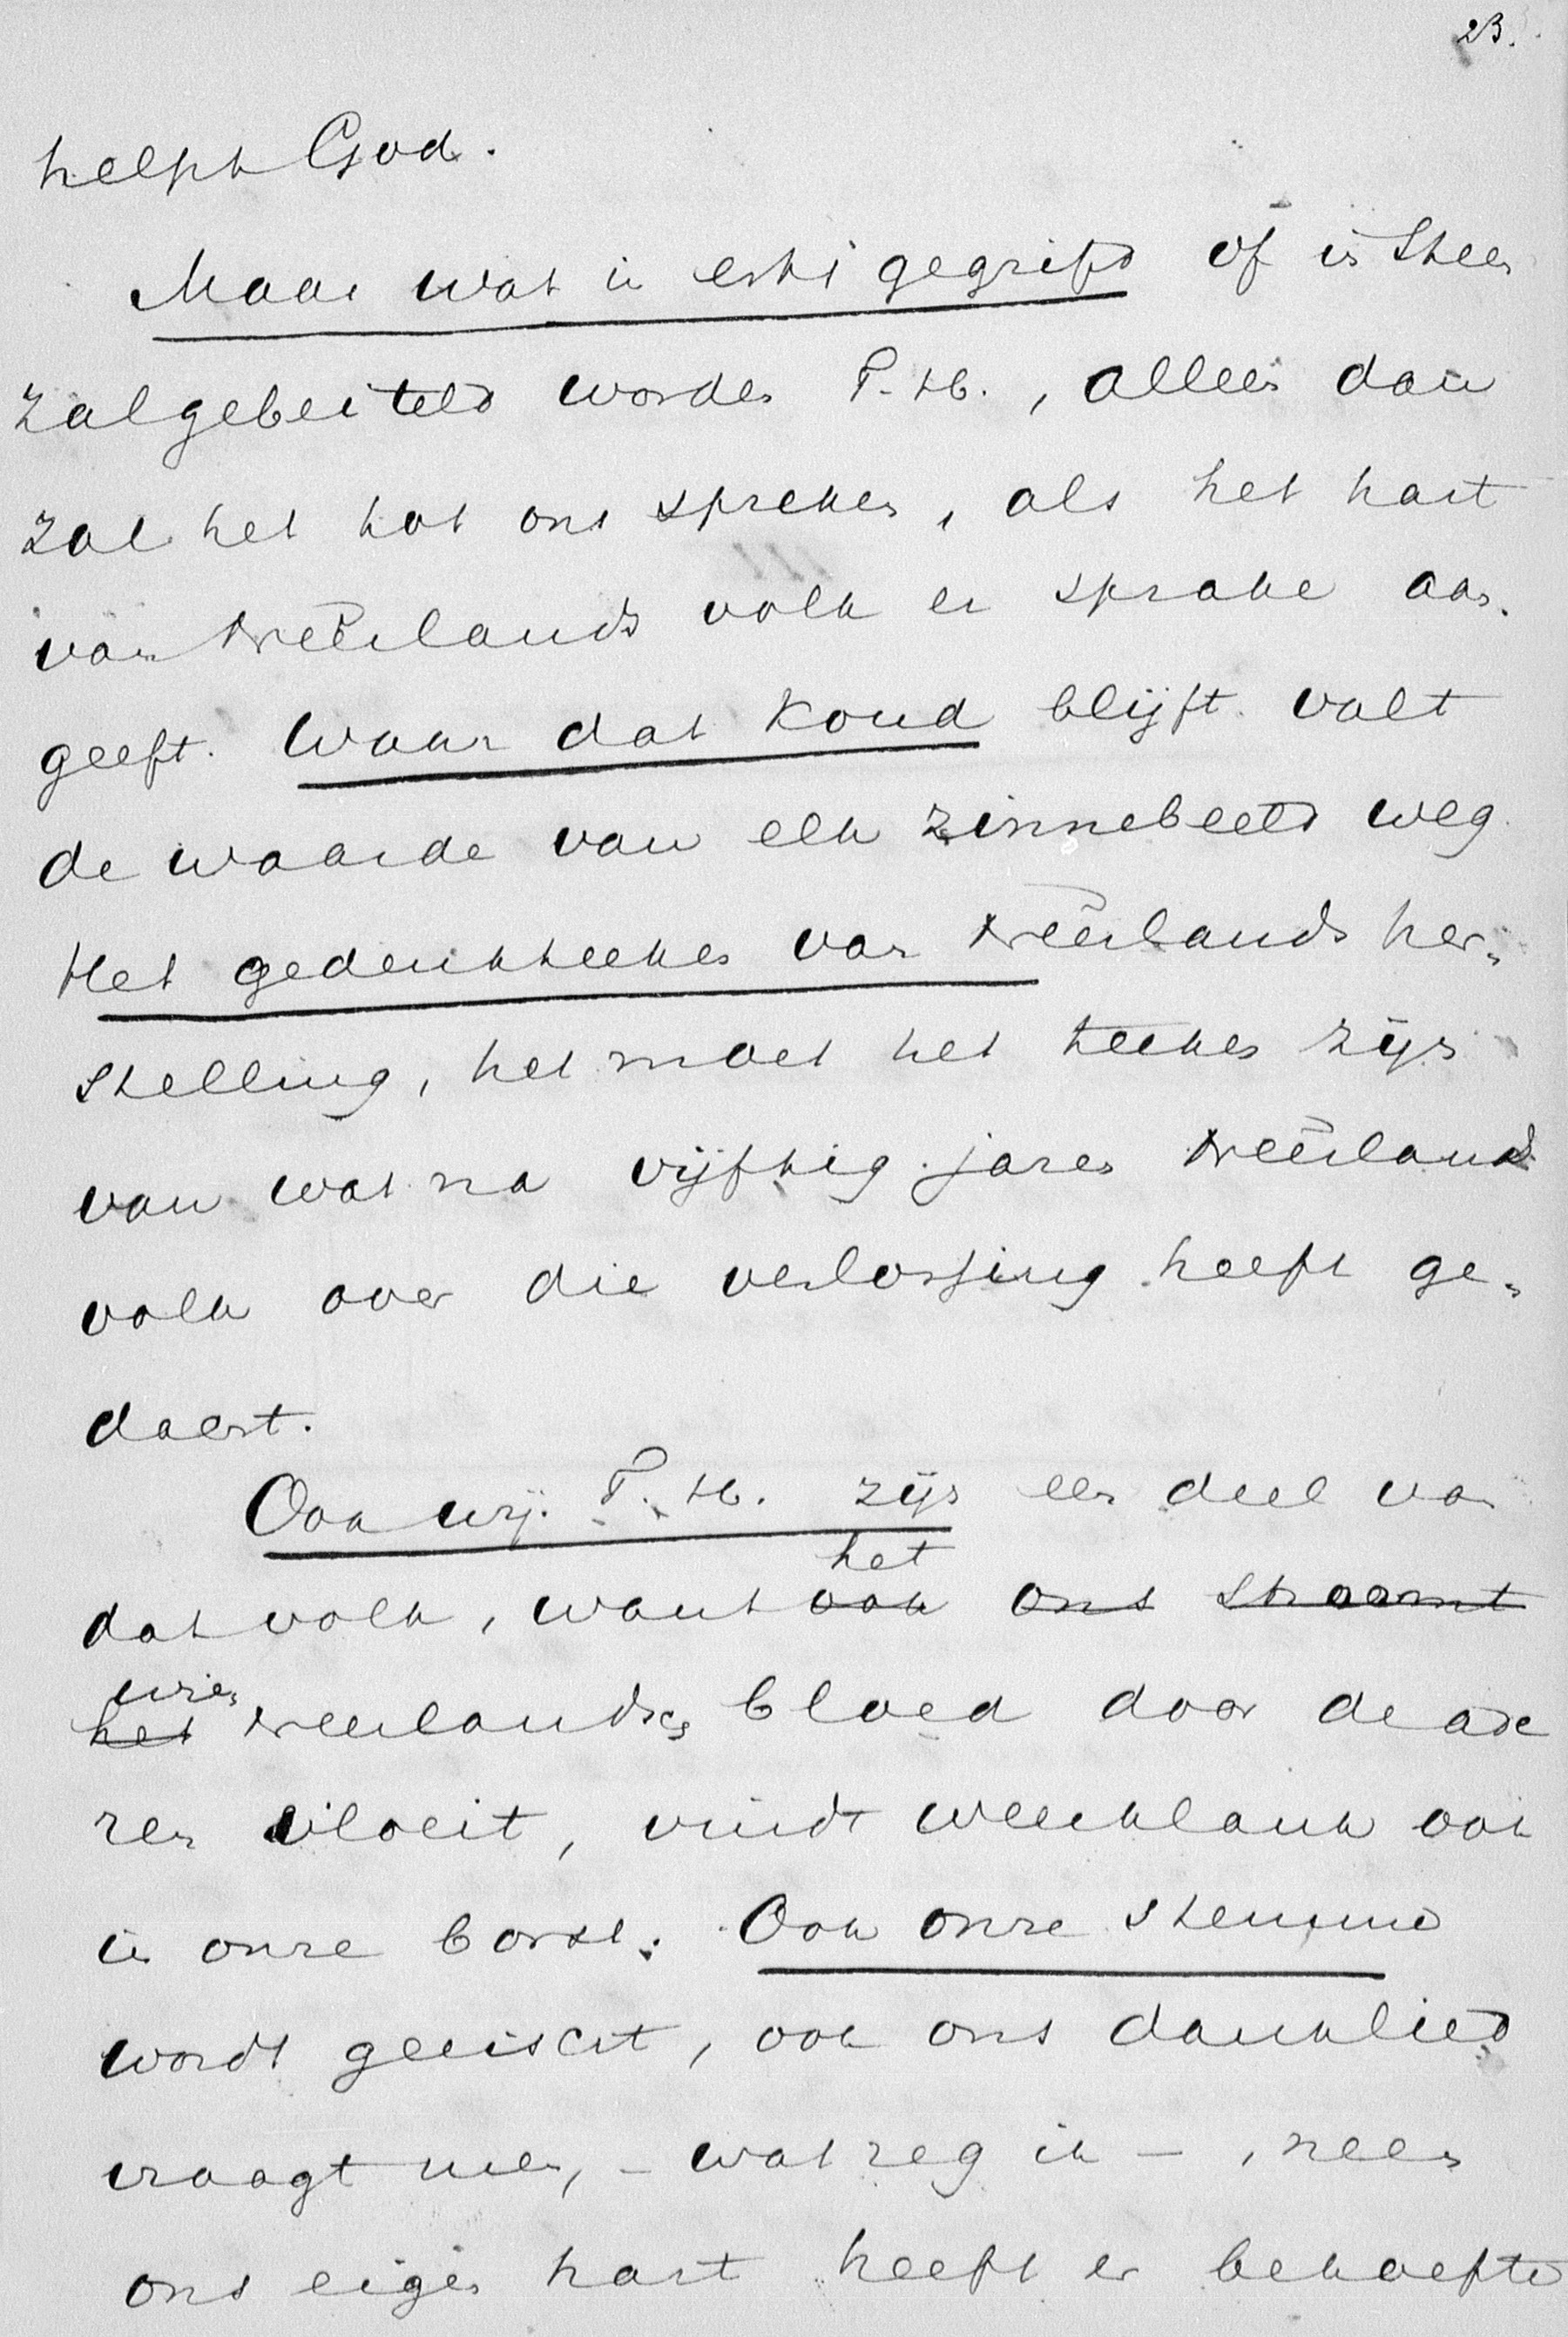 23.
helpt God.
Maar wat in erts gegrift of in steen
zal gebeiteld worden T. H., alleen dan
zal het tot ons spreken, als het hart
van Neêrlands volk er sprake aan
geeft. Waar dat koud blijft valt
de waarde van elk zinnebeeld weg.
Het gedenkteeken van Neêrlands her-
stelling, het moet het teeken zijn
van wat na vijftig jaren Neêrlands
volk over die verlossing heeft ge-
dacht.
Ook wij T. H. zijn een deel van
het
dat volk, want ook ons stroomt
wien
het Neerlandsch bloed door de ade
ren vloeit, vindt weerklank ook
in onze borst. Ook onze stemme
wordt geeischt, ook ons danklied
vraagt men, – wat zeg ik – , neen
ons eigen hart heeft er behoefte